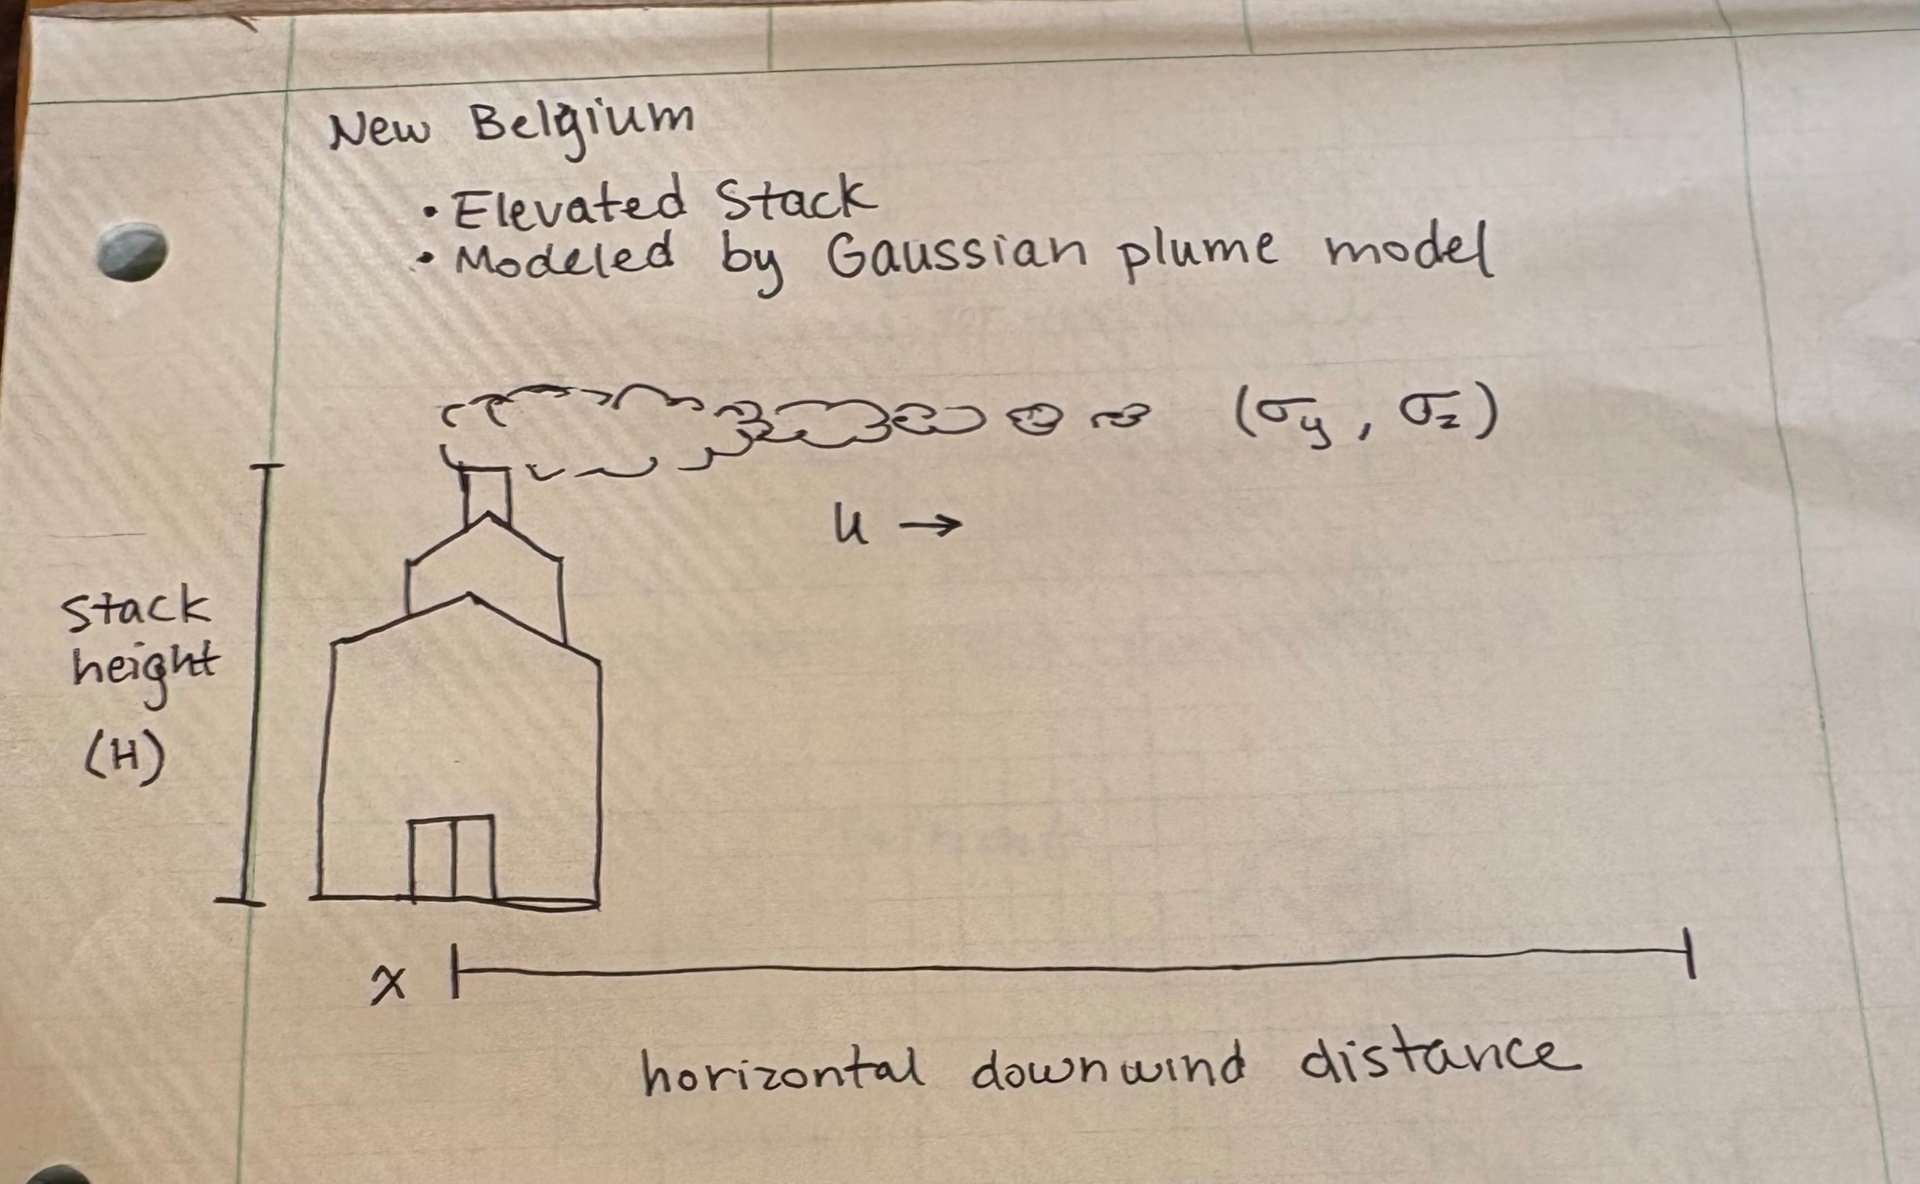 New Belgium
• Elevated Stack
• Modeled by Gaussian plume model
(σy, σz)
u →
stack
height
(H)
x
horizontal downwind distance